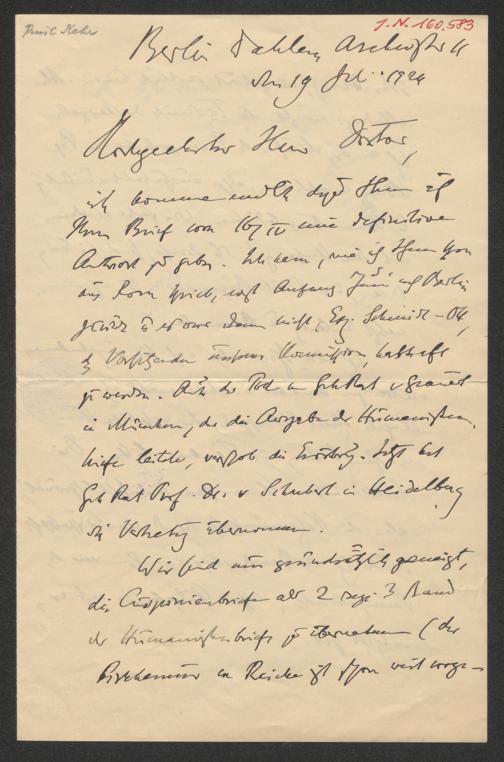 Paul Kehr
J. N. 160.583
Berlin Dahlem Archivstr 11
den 19 Juli 1924
Hochgeehrter Herr Doktor,
ich komme endlich dazu Ihnen auf
Ihren Brief vom 16/IV eine definitive
Antwort zu geben. Ich kam, wie ich Ihnen schon
aus Rom schrieb, erst Anfang Juni nach Berlin
zurück u es war dann nicht, Exz. Schmidt-Ott,
d Vorsitzenden unserer Kommission, habhaft
zu werden. Auch der Tod von GehRat v Grauert
in München, der die Ausgabe der Humanisten-
briefe leitete, verschob die. Jetzt hat
GehRat Prof. Dr. v Schubert in Heidelberg
die Vertretung übernommen.
Wir sind nun grundsätzlich geneigt,
die Cuspinianbriefe als 2 resp. 3 Band
der Humanistenbriefe zu übernehmen (der
Pirkheimer von Reicke ist schon weit vorge-